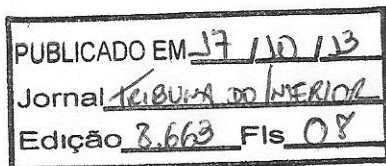 PUBLICADO EM 17 / 10 / 13
Jornal TRIBUNA DO INTERIOR
Edição 8.663 Fls 08